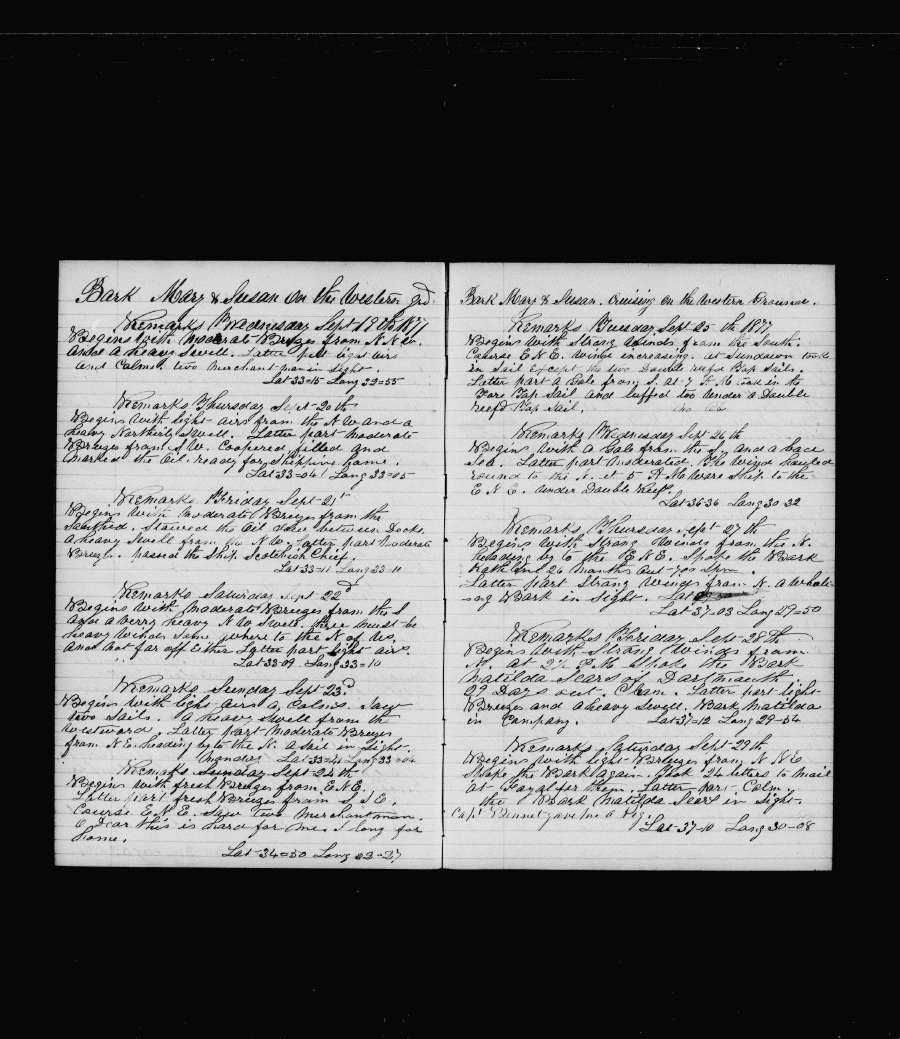 Bark Mary & Susan on the Western grd.
Remarks Wednesday Sept 19th 1877
Begins with moderate Breezes from N.N.W.
and a heavy Swell. Latter part light airs
and Calms. two merchantmen in sight.
Lat 33=15 Long 32=55
Remarks Thursday Sept 20th
Begins with light airs from the N.W and a
heavy Northerly Swell. Latter part moderate
Breezes from S.W. Coopered filled and
marked the Oil ready for Shipping home.
Lat 33=04 Long 33=05
Remarks Friday Sept 21st
Begins with moderate Breezes from the
Southrd. Stowed the Oil between Decks.
A heavy Swell from the N.W. Latter part moderate
Breezes. passed the Ship Scotchish Chief.
Lat 33=11 Long 33=11
Remarks Saturday Sept 22d
Begins with moderate Breezes from the S
and a verry heavy N.W Swell. there must be
heavy Winds Some where to the N of us
and not far off Either Latter part light airs.
Lat 33=09 Long 33=10
Remarks Sunday Sept 23d
Begins with light airs & Calms. Saw
two Sails. A heavy Swell from the
Westward. Latter part Moderate Breezes
from N.E. heading by to the N. A Sail in Sight.
Monday Lat 33=41 Long 33=04
Remarks Sunday Sept 24th
Begins with fresh Breezes from E.N.E.
Latter part fresh Breezes from S.S.E.
Course E.N.E. Saw two merchantman.
O Dear this is hard for me. I long for
home.
Lat 34=50 Long 33=27
Bark Mary & Susan. Cruising on the Western Ground.
Remarks Tuesday Sept 25th 1877
Begins with Strong winds from the South.
Course E.N.E. wind increasing. at Sundown took
in Sail Except the two Double reefd Top Sails.
Latter part a Gale from S. at 7 A.M took in the
Fore Top Sail and luffed too under a Double
reefd Top Sail. No Ob
Remarks Wednesday Sept 26th
Begins With a Gale from the S and a bad
Sea. Latter part moderated. The Wind hauled
round to the N. at 5 A.M Wore Ship to the
E.N.E. under Double Reefs.
Lat 36=36 Long 30=32
Remarks Thursday Sept 27th
Begins with Strong Winds from the N.
heading by to the E.N.E. Spoke the Bark
26 months out 700 Spm.
Latter part Strong Winds from N. a Whali
=ng Bark in Sight.
Lat 37=03 Long 29=50
Remarks Friday Sept 28th
Begins With Strong Winds from
N. at 2½ P.M Spoke the Bark
Matilda Sears of Dartmouth
29 Days out. Clean. Latter part light
Breezes and a heavy Swell. Bark Matilda
in Company. Lat 37=12 Long 29=54
Remarks Saturday Sept 29th
Begins with light Breezes from N.N.E
Spoke the Bark again. Took 24 letters to mail
at Fayal for them. Latter part Calm.
the Bark Matilda Sears in Sight.
Capt Bennet gave me a Pig.
Lat 37=10 Long 30=08